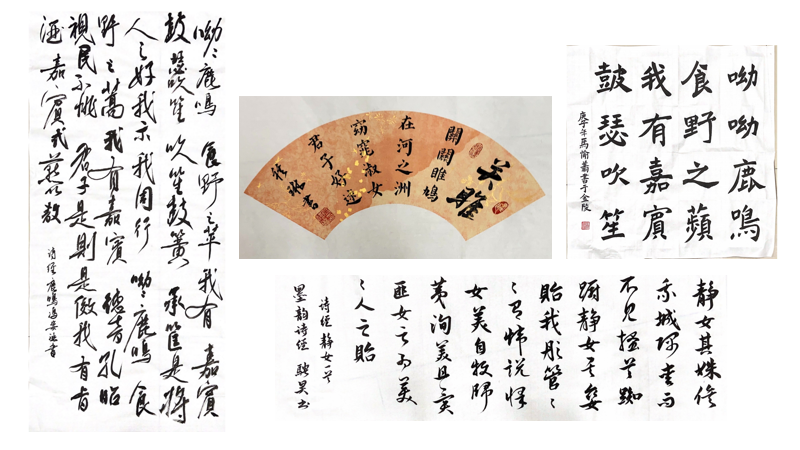 呦〻鹿鳴 食野〻苹 我有嘉賓
鼓瑟吹笙 吹笙鼓簧 承筐是將
人之好我 示我周行 呦〻鹿鳴 食
野之蒿 我有嘉賓 德音孔昭
視民不恌 君子是則是傚 我有旨
酒 嘉賓式燕以敖
诗经鹿鳴
关雎
關關雎鳩
在河之洲
窈窕淑女
君子好逑
呦呦鹿鳴
食野之蘋
我有嘉賓
鼓瑟吹笙
庚子年馬愉蕭書于金陵
靜女其姝俟
於城隅愛而
不見搔首踟
躕靜女其孌
貽我彤管〻
〻有煒説懌
女美自牧歸
荑洵美且異
匪女之為美
〻人之貽
诗经静女一首
墨韵诗经